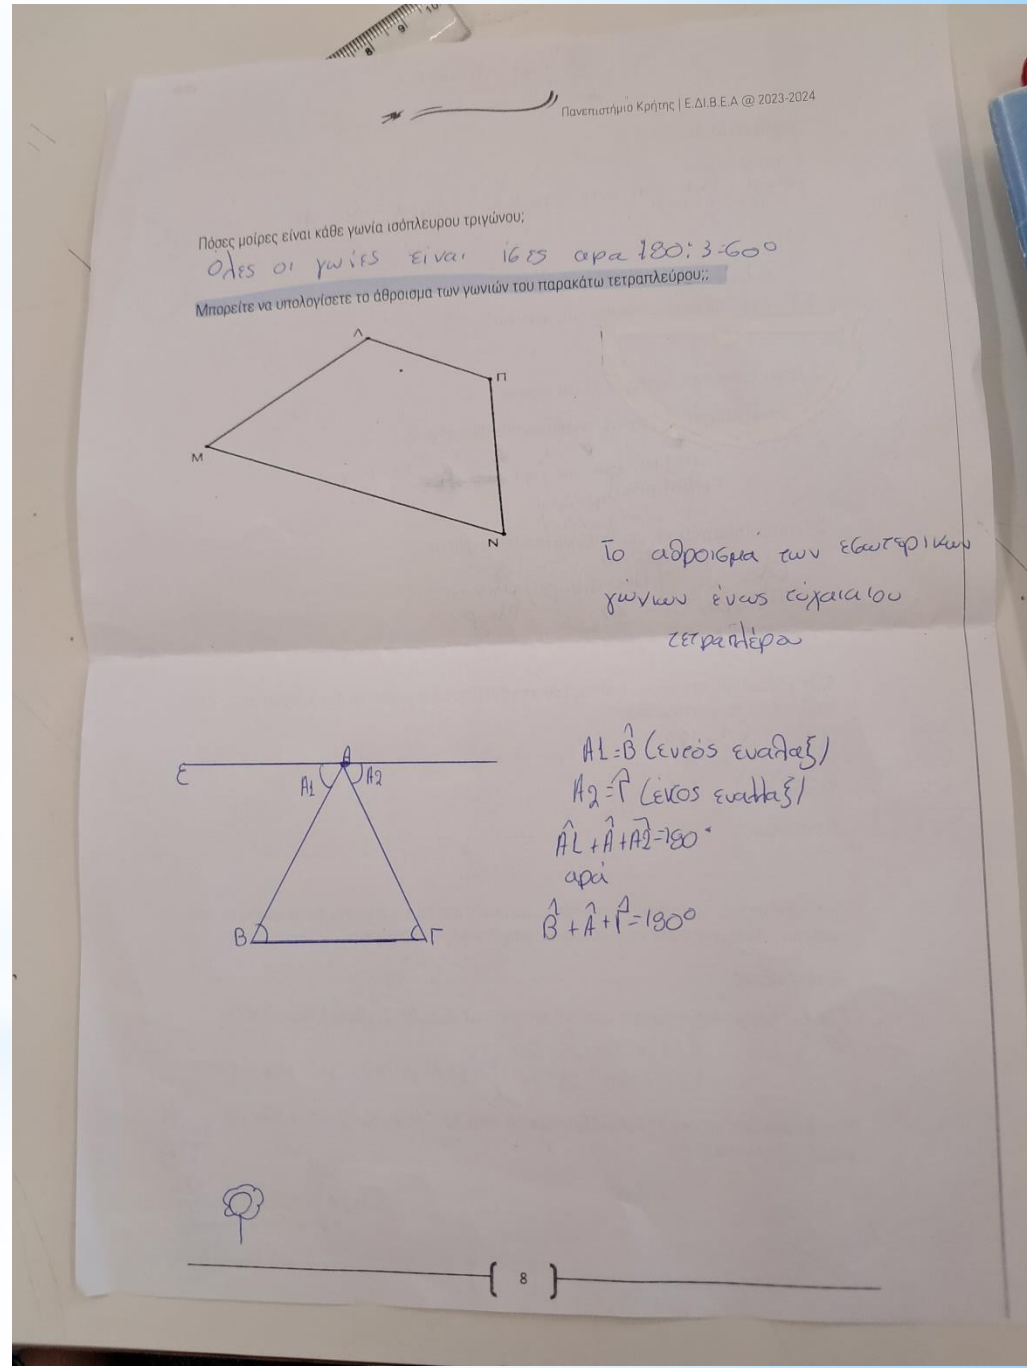 8 9 10
Πανεπιστήμιο Κρήτης | Ε.ΔΙ.Β.Ε.Α @ 2023-2024
Πόσες μοίρες είναι κάθε γωνία ισόπλευρου τριγώνου;
Όλες οι γωίες είναι ίσες αρα 180:3=60°
Μπορείτε να υπολογίσετε το άθροισμα των γωνιών του παρακάτω τετραπλεύρου;;
Λ
Π
Μ
Ν
Το αθροισμα των εσωτερικων
γώνιων ένως τύχαιαιου
τετραπλέρου
Α
ε
Α1
Α2
Β
Γ
Α1=Β̂ (εντός εναλαξ)
Α2=Γ̂ (έκος εναλλαξ)
Α̂1+Α̂+Α̂2=180°
αρά
Β̂+Α̂+Γ̂=180°
8